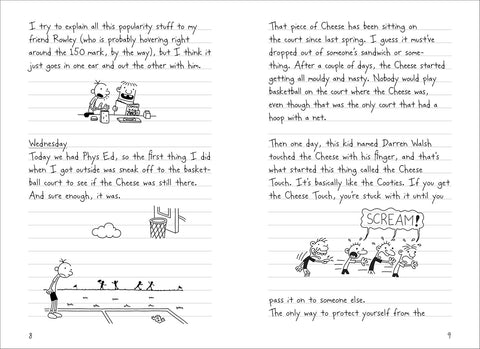 I try to explain all this popularity stuff to my
friend Rowley (who is probably hovering right
around the 150 mark, by the way), but I think it
just goes in one ear and out the other with him.
Wednesday
Today we had Phys Ed, so the first thing I did
when I got outside was sneak off to the basket-
ball court to see if the Cheese was still there.
And sure enough, it was.
8
That piece of Cheese has been sitting on
the court since last spring. I guess it must've
dropped out of someone's sandwich or some-
thing. After a couple of days, the Cheese started
getting all mouldy and nasty. Nobody would play
basketball on the court where the Cheese was,
even though that was the only court that had a
hoop with a net.
Then one day, this kid named Darren Walsh
touched the Cheese with his finger, and that's
what started this thing called the Cheese
Touch. It's basically like the Cooties. If you get
the Cheese Touch, you're stuck with it until you
SCREAM!
pass it on to someone else.
The only way to protect yourself from the
9